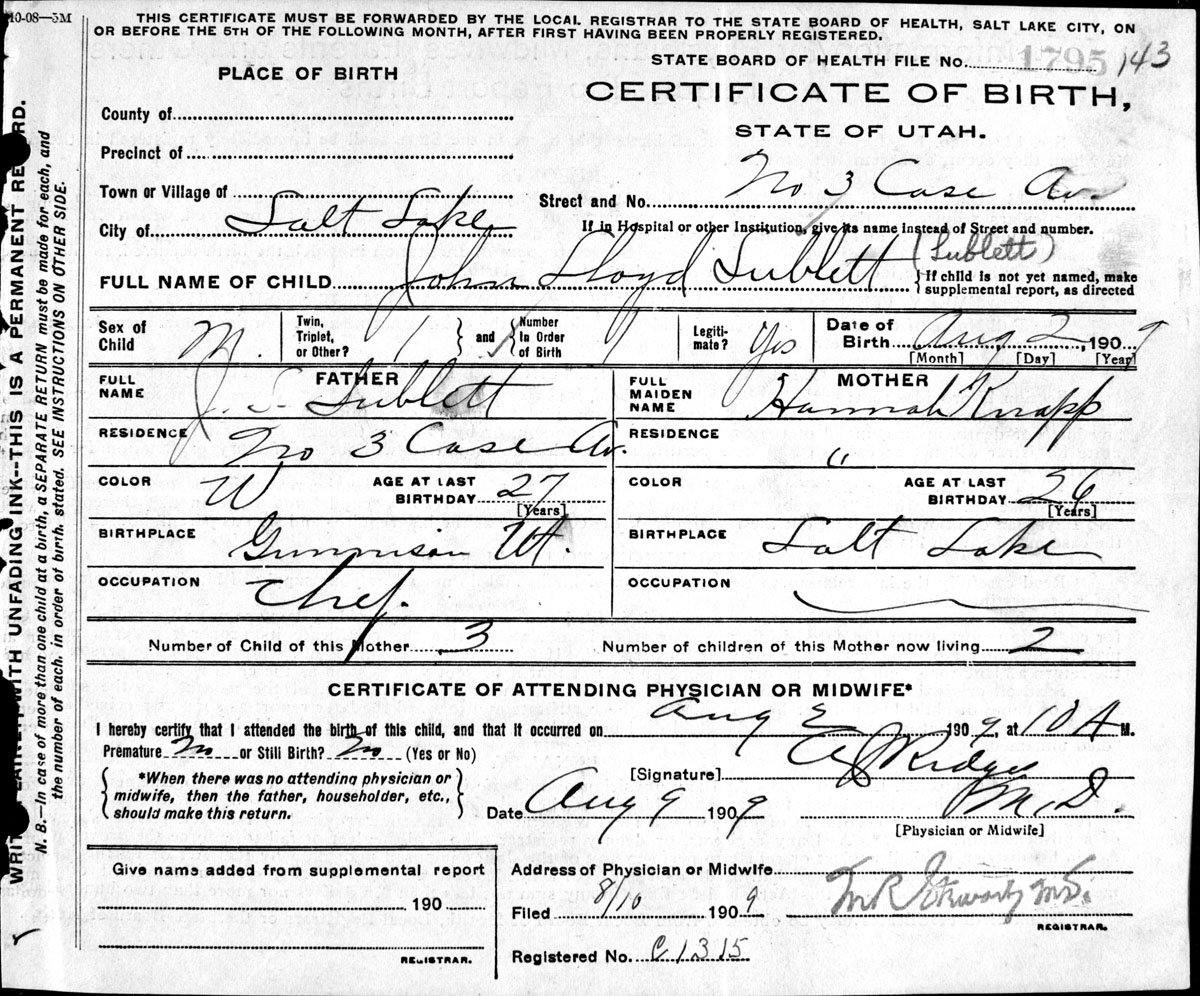 10-08—3M
THIS CERTIFICATE MUST BE FORWARDED BY THE LOCAL REGISTRAR TO THE STATE BOARD OF HEALTH, SALT LAKE CITY, ON
OR BEFORE THE 5TH OF THE FOLLOWING MONTH, AFTER FIRST HAVING BEEN PROPERLY REGISTERED.
STATE BOARD OF HEALTH FILE No. 1795 143
PLACE OF BIRTH
CERTIFICATE OF BIRTH,
STATE OF UTAH.
County of
Precinct of
Town or Village of
City of Salt Lake
Street and No. No 3 Case Av.
If in Hospital or other Institution, give its name instead of Street and number.
FULL NAME OF CHILD John Lloyd Sublett (Sublett)
If child is not yet named, make
supplemental report, as directed
Sex of Child M.
Twin, Triplet, or Other? 1 and Number In Order of Birth 1
Legiti-mate? Yes
Date of Birth Aug 2, 1909
[Month] [Day] [Year]
FATHER
FULL NAME J. S. Sublett
RESIDENCE No 3 Case Av.
COLOR W AGE AT LAST BIRTHDAY 27 [Years]
BIRTHPLACE Gunnison Ut.
OCCUPATION Chef.
MOTHER
FULL MAIDEN NAME Hannah Knapp
RESIDENCE "
COLOR AGE AT LAST BIRTHDAY 26 [Years]
BIRTHPLACE Salt Lake
OCCUPATION
Number of Child of this Mother 3 Number of children of this Mother now living 2
CERTIFICATE OF ATTENDING PHYSICIAN OR MIDWIFE*
I hereby certify that I attended the birth of this child, and that it occurred on Aug 2 1909, at 10 A M.
Premature No or Still Birth? No (Yes or No)
*When there was no attending physician or
midwife, then the father, householder, etc.,
should make this return.
[Signature] Ridges
Date Aug 9 1909 M.D.
[Physician or Midwife]
Give name added from supplemental report
190
REGISTRAR.
Address of Physician or Midwife
Filed 8/10 1909 M.D.
REGISTRAR.
Registered No. C1315
WRITE PLAINLY WITH UNFADING INK--THIS IS A PERMANENT RECORD.
N. B.—In case of more than one child at a birth, a SEPARATE RETURN must be made for each, and
the number of each, in order of birth, stated. SEE INSTRUCTIONS ON OTHER SIDE.